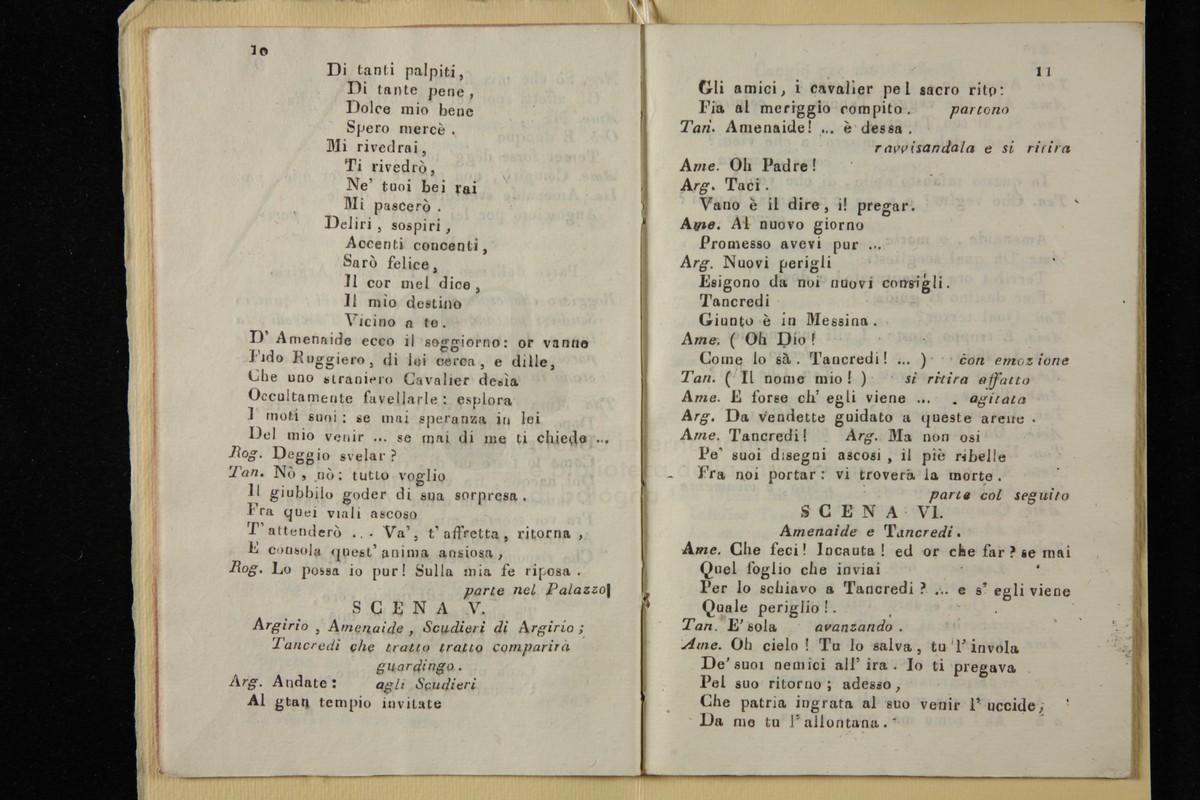 10
Di tanti palpiti,
Di tante pene,
Dolce mio bene
Spero mercè.
Mi rivedrai,
Ti rivedrò,
Ne' tuoi bei rai
Mi pascerò.
Deliri, sospiri,
Accenti concenti,
Sarò felice,
Il cor mel dice,
Il mio destino
Vicino a te.
D' Amenaide ecco il soggiorno: or vanne
Fido Ruggiero, di lei cerca, e dille,
Che uno straniero Cavalier desìa
Occultamente favellarle: esplora
I moti suoi: se mai speranza in lei
Del mio venir ... se mai di me ti chiede ...
Rog. Deggio svelar?
Tan. Nò, nò: tutto voglio
Il giubbilo goder di sua sorpresa.
Fra quei viali ascoso
T' attenderò ... Va', t' affretta, ritorna,
E consola quest' anima ansiosa,
Rog. Lo possa io pur! Sulla mia fe riposa.
parte nel Palazzo
SCENA V.
Argirio, Amenaide, Scudieri di Argirio;
Tancredi che tratto tratto comparirà
guardingo.
Arg. Andate: agli Scudieri
Al gtan tempio invitate
11
Gli amici, i cavalier pel sacro rito:
Fia al meriggio compito. partono
Tan. Amenaide! ... è dessa.
ravvisandala e si ritira
Ame. Oh Padre!
Arg. Taci.
Vano è il dire, il pregar.
Ame. Al nuovo giorno
Promesso avevi pur ...
Arg. Nuovi perigli
Esigono da noi nuovi consigli.
Tancredi
Giunto è in Messina.
Ame. ( Oh Dio!
Come lo sà. Tancredi! ... ) con emozione
Tan. ( Il nome mio! ) si ritira affatto
Ame. E forse ch' egli viene ... . agitata
Arg. Da vendette guidato a queste arene.
Ame. Tancredi! Arg. Ma non osi
Pe' suoi disegni ascosi, il piè ribelle
Fra noi portar: vi troverà la morte.
parte col seguito
SCENA VI.
Amenaide e Tancredi.
Ame. Che feci! Incauta! ed or che far? se mai
Quel foglio che inviai
Per lo schiavo a Tancredi? ... e s' egli viene
Quale periglio!.
Tan. E' sola avanzando.
Ame. Oh cielo! Tu lo salva, tu l' invola
De' suoi nemici all' ira. Io ti pregava
Pel suo ritorno; adesso,
Che patria ingrata al suo venir l' uccide;
Da me tu l' allontana.